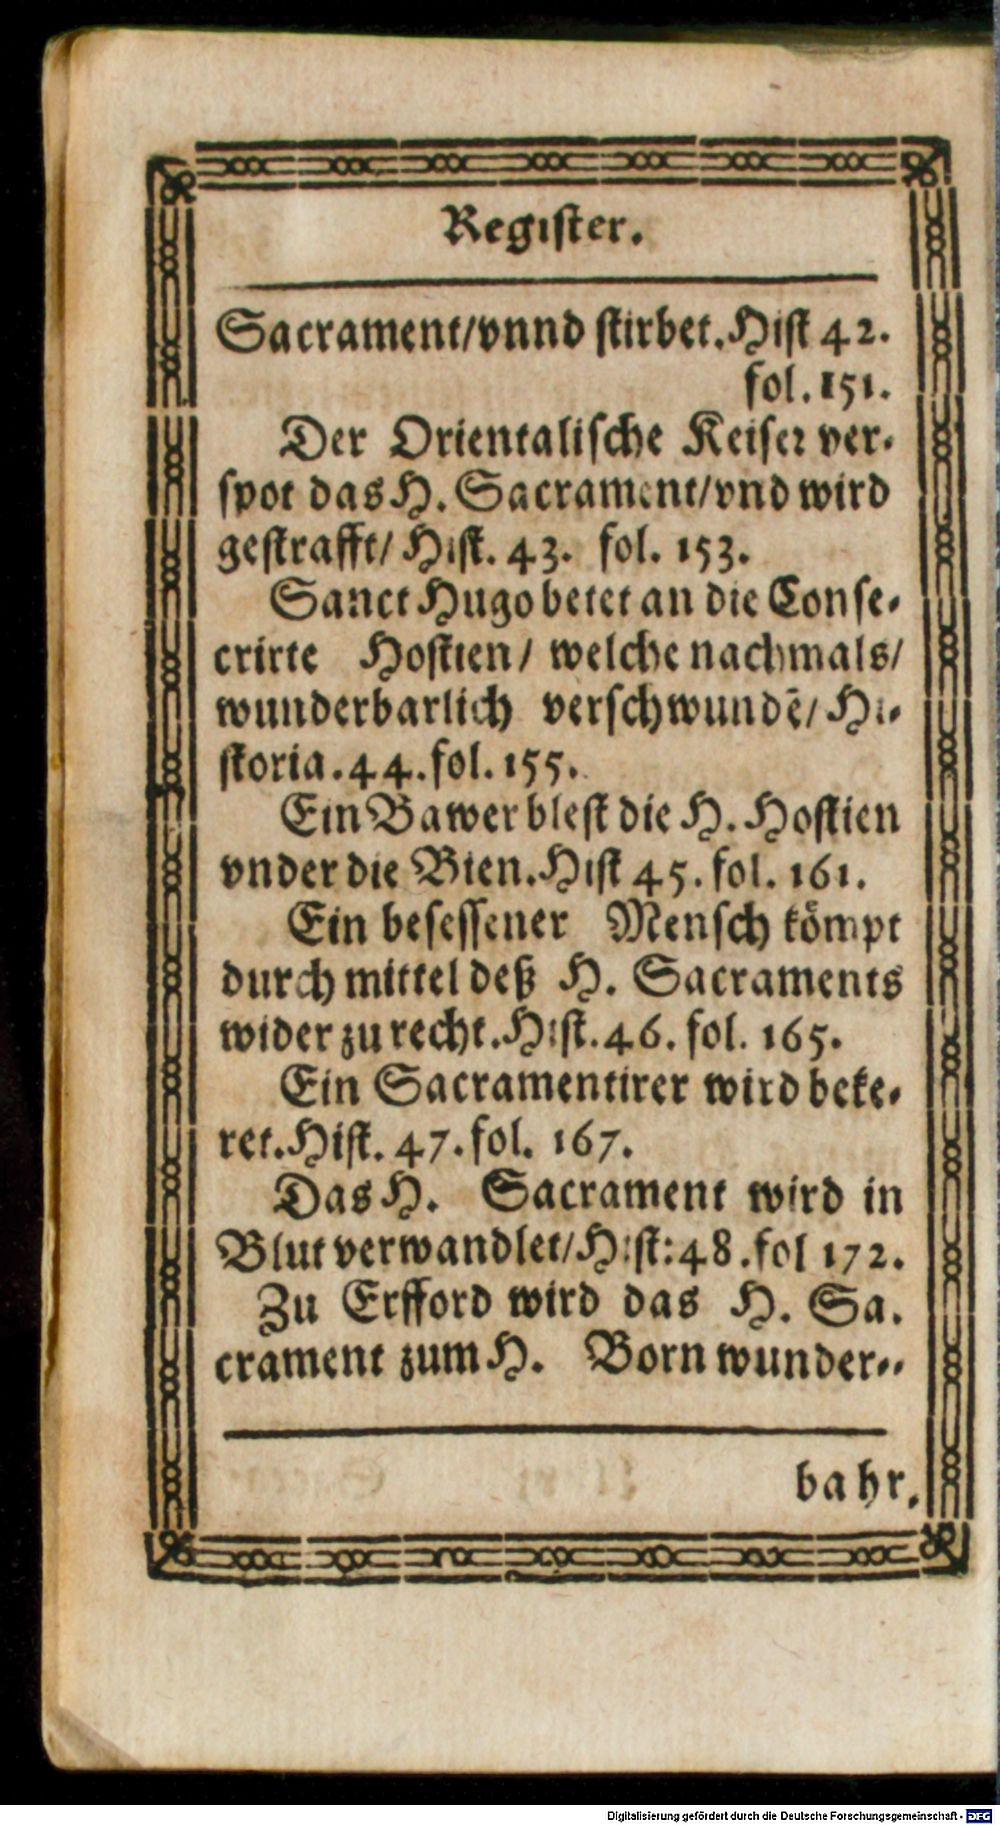 Register.
Sacrament/vnnd stirbet. Hist 42.
fol. 151.
Der Orientalische Keiser ver-
spot das H. Sacrament/vnd wird
gestrafft/ Hist. 43. fol. 153.
Sanct Hugo betet an die Conse-
crirte Hostien/ welche nachmals/
wunderbarlich verschwundē/ Hi-
storia. 44. fol. 155.
Ein Bawer blest die H. Hostien
vnder die Bien. Hist 45. fol. 161.
Ein besessener Mensch kömpt
durch mittel deß H. Sacraments
wider zu recht. Hist. 46. fol. 165.
Ein Sacramentirer wird beke-
ret. Hist. 47. fol. 167.
Das H. Sacrament wird in
Blut verwandlet/Hist: 48. fol 172.
Zu Erfford wird das H. Sa.
crament zum H. Born wunder-
bahr.
Digitalisierung gefördert durch die Deutsche Forschungsgemeinschaft - DFG